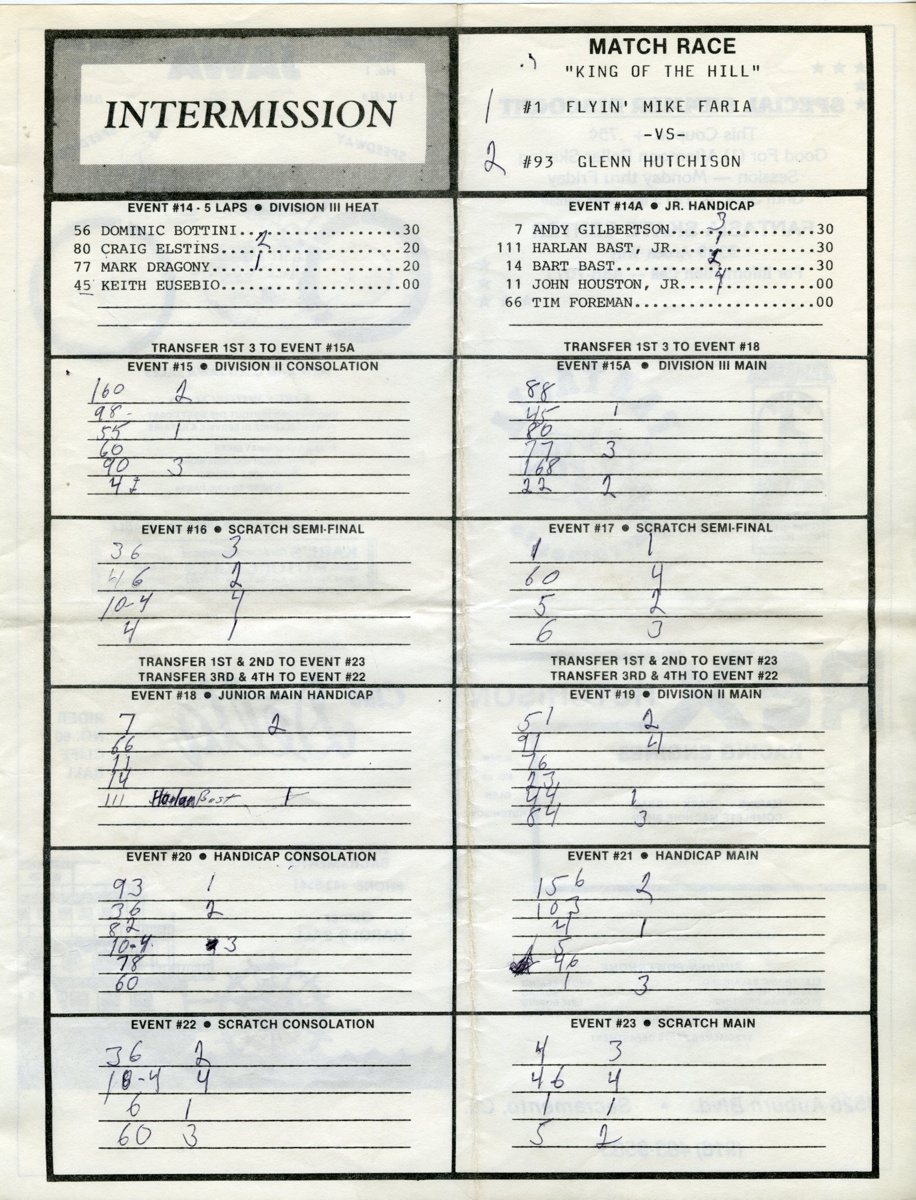 INTERMISSION
MATCH RACE
"KING OF THE HILL"
1 #1 FLYIN' MIKE FARIA
-VS-
2 #93 GLENN HUTCHISON
EVENT #14 - 5 LAPS ● DIVISION III HEAT
56 DOMINIC BOTTINI..................30
80 CRAIG ELSTINS....2...............20
77 MARK DRAGONY.....1...............20
45 KEITH EUSEBIO....................00
TRANSFER 1ST 3 TO EVENT #15A
EVENT #14A ● JR. HANDICAP
7 ANDY GILBERTSON.....3..........30
111 HARLAN BAST, JR.....1..........30
14 BART BAST...........2..........30
11 JOHN HOUSTON, JR....4..........00
66 TIM FOREMAN....................00
TRANSFER 1ST 3 TO EVENT #18
EVENT #15 ● DIVISION II CONSOLATION
160 2
98-
55 1
60
90 3
EVENT #15A ● DIVISION III MAIN
88
45 1
80
77 3
168
22 2
EVENT #16 ● SCRATCH SEMI-FINAL
36 3
46 2
10-4 4
4 1
TRANSFER 1ST & 2ND TO EVENT #23
TRANSFER 3RD & 4TH TO EVENT #22
EVENT #17 ● SCRATCH SEMI-FINAL
1 1
60 4
5 2
6 3
TRANSFER 1ST & 2ND TO EVENT #23
TRANSFER 3RD & 4TH TO EVENT #22
EVENT #18 ● JUNIOR MAIN HANDICAP
7 2
66
11
14
111 Harlan Bast 1
EVENT #19 ● DIVISION II MAIN
51 2
91 4
16
23
44 1
84 3
EVENT #20 ● HANDICAP CONSOLATION
93 1
36 2
82
10-4 3
78
60
EVENT #21 ● HANDICAP MAIN
156 2
103
4 1
5
46
1 3
EVENT #22 ● SCRATCH CONSOLATION
36 2
10-4 4
6 1
60 3
EVENT #23 ● SCRATCH MAIN
4 3
46 4
1 1
5 2